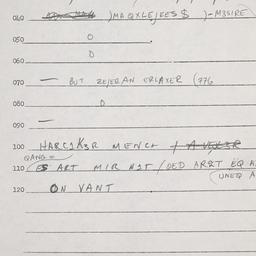 040 )MAQXLEJEES $ )-M3SIRE
050 O
060 O
070 — BUT ZEJERAN ERLAXER (776
080 O
090 —
100 HARC1K3R MENCH
QANG =
110 ES ART MIR N1T / DED ARRT EQ A
(UNEQ A
120 ON VANT